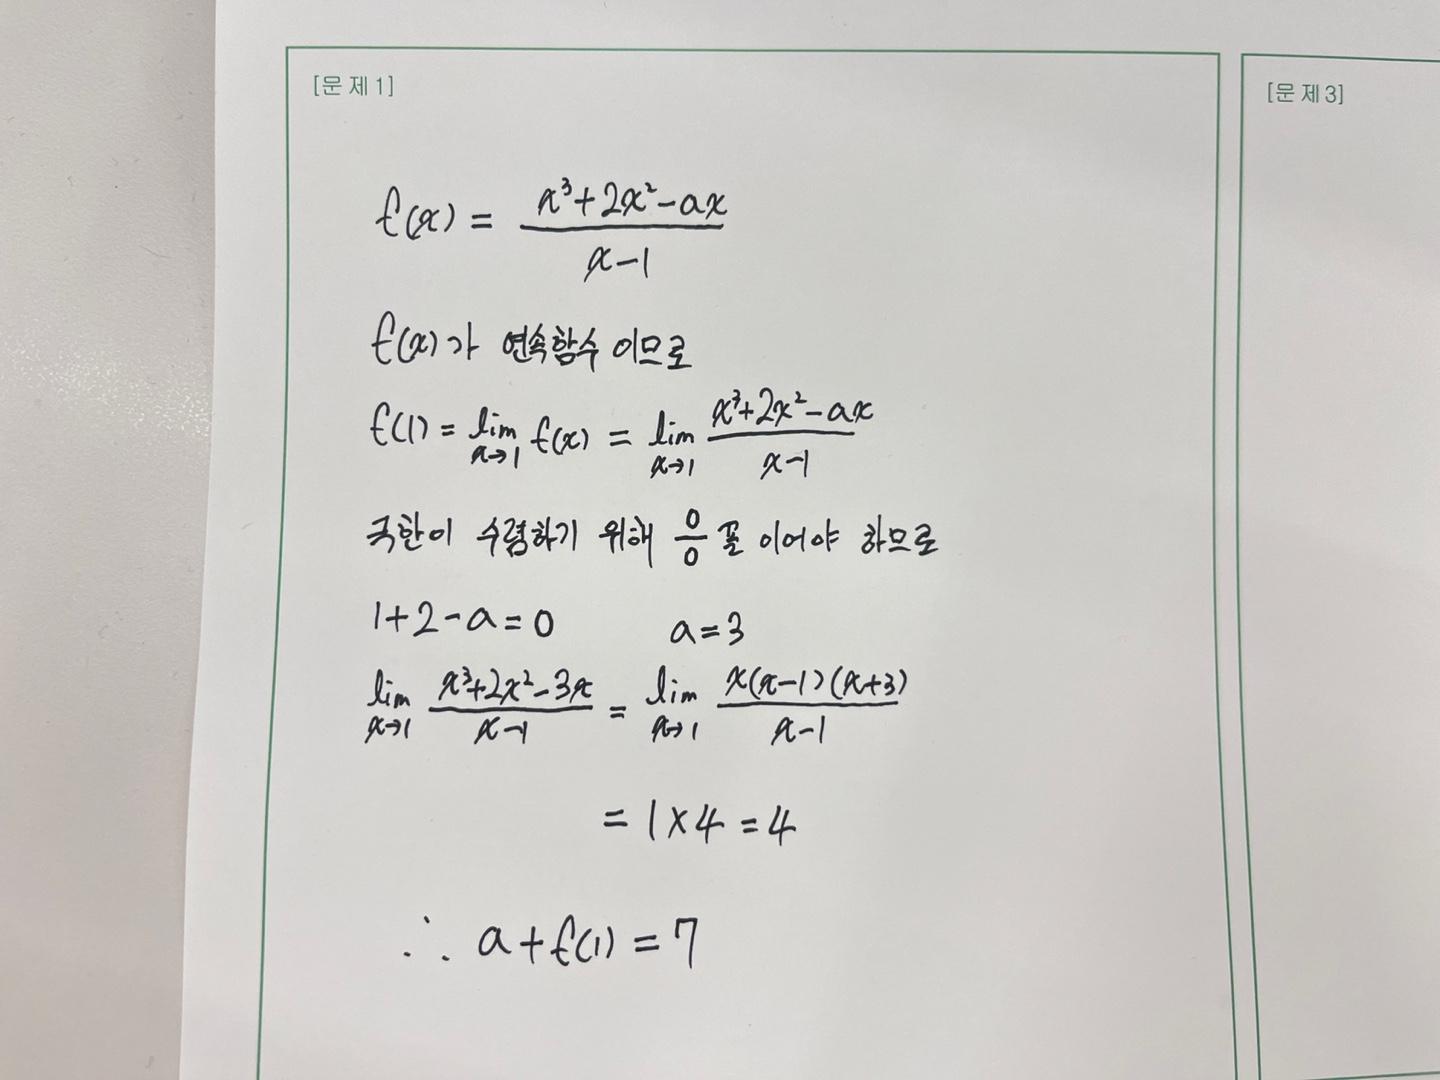 [문 제 1]
f(x) = (x³+2x²-ax)/(x-1)
f(x)가 연속함수 이므로
f(1) = lim x→1 f(x) = lim x→1 (x³+2x²-ax)/(x-1)
극한이 수렴하기 위해 0/0 꼴 이어야 하므로
1+2-a=0 a=3
lim x→1 (x³+2x²-3x)/(x-1) = lim x→1 x(x-1)(x+3)/(x-1)
= 1×4 = 4
∴ a+f(1) = 7
[문 제 3]